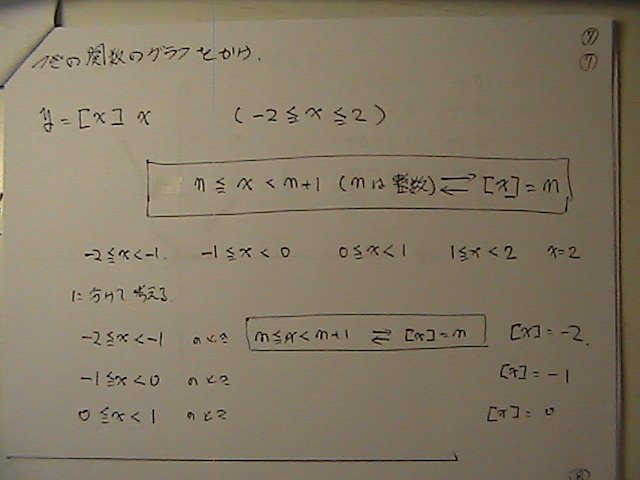 次の関数のグラフをかけ.
y = [x] x (-2 ≦ x ≦ 2)
n ≦ x < n+1 (nは整数) ⇄ [x] = n
-2≦x<-1. -1≦x<0 0≦x<1 1≦x<2 x=2
に分けて考える
-2≦x<-1 のとき n≦x<n+1 ⇄ [x]=n [x]=-2.
-1≦x<0 のとき [x]=-1
0≦x<1 のとき [x]=0